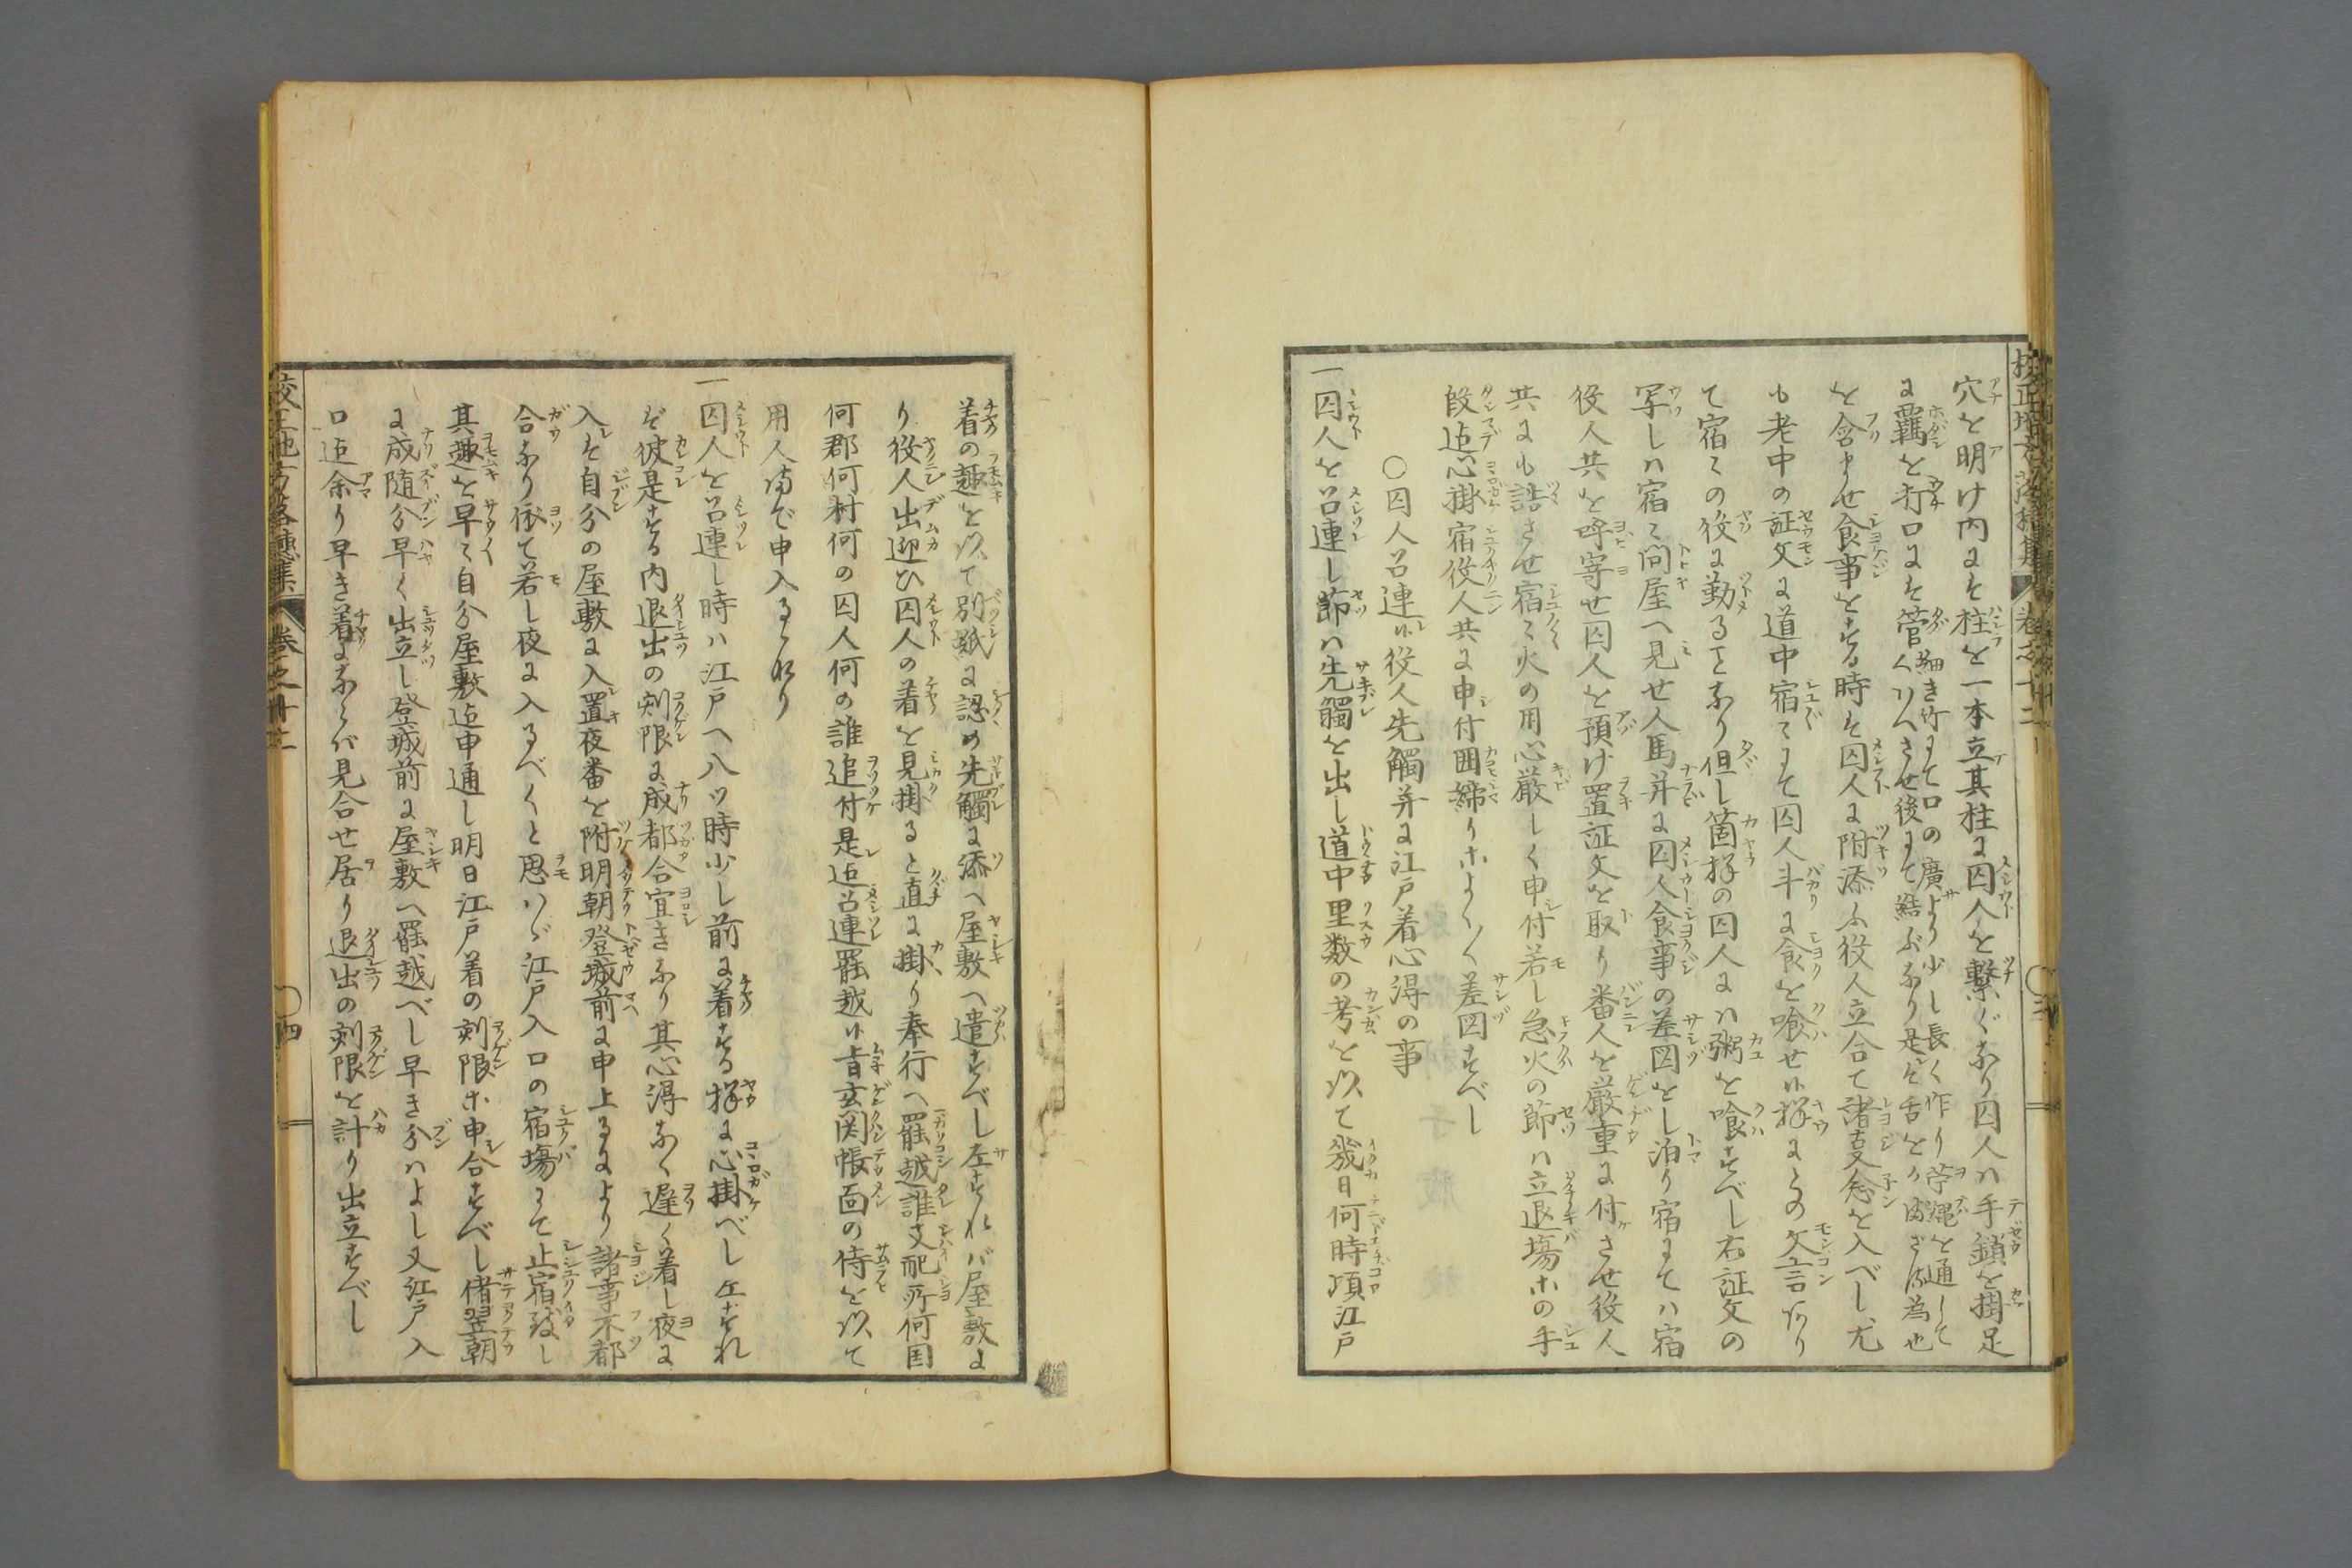 穴を明け内に柱を一本立其柱に囚人を繋ぐなり囚人は手鎖を掛足
に羈を打口に管細き竹にて口の廣より少し長く作り苧縄を通して
くはへさせ後にて結ぶなり是ハ舌を
を含ませ食事をする時ハ囚人に附添ふ役人立合て諸事念を入べし尤
も老中の証文に道中宿々にて囚人斗に食を喰せ候様にとの文言あり
て宿々の役に勤ることなり但し箇様の囚人には粥を喰すべし右証文の
写しは宿々問屋へ見せ人馬并に囚人食事の差図をし泊り宿にては宿
役人共を呼寄せ囚人を預け置証文を取り番人を厳重に付させ役人
共にも詰させ宿々火の用心厳しく申付若し急火の節は立退場等の手
段迄心掛宿役人共に申付囲締り等よく〳〵差図すべし
○囚人召連候役人先觸并に江戸着心得の事
一囚人を召連し節は先觸を出し道中里数の考を以て幾日何時頃江戸
着の趣を以て別紙に認め先觸に添へ屋敷へ遣すべし左すれば屋敷よ
り役人出迎ひ囚人の着を見掛ると直に掛り奉行へ罷越誰支配所何国
何郡何村何の囚人何の誰追付是迄召連罷越候旨玄関帳面の侍を以て
用人まで申入るゝなり
一囚人を召連し時は江戸へ八ツ時少し前に着する様に心掛べし左すれ
ば彼是する内退出の刻限に成都合宜きなり其心得なく遅く着し夜に
入ハ自分の屋敷に入置夜番を附明朝登城前に申上るにより諸事不都
合なり依て若し夜に入るべくと思はゞ江戸入口の宿場にて止宿致し
其趣を早々自分屋敷迄申通し明日江戸着の刻限等申合すべし偖翌朝
に成随分早く出立し登城前に屋敷へ罷越べし早き分はよし又江戸入
口迄余り早き着にならば見合せ居り退出の刻限を計り出立すべし
校正地方落穂集
卷之十二
三
校正地方落穂集
卷之十二
四